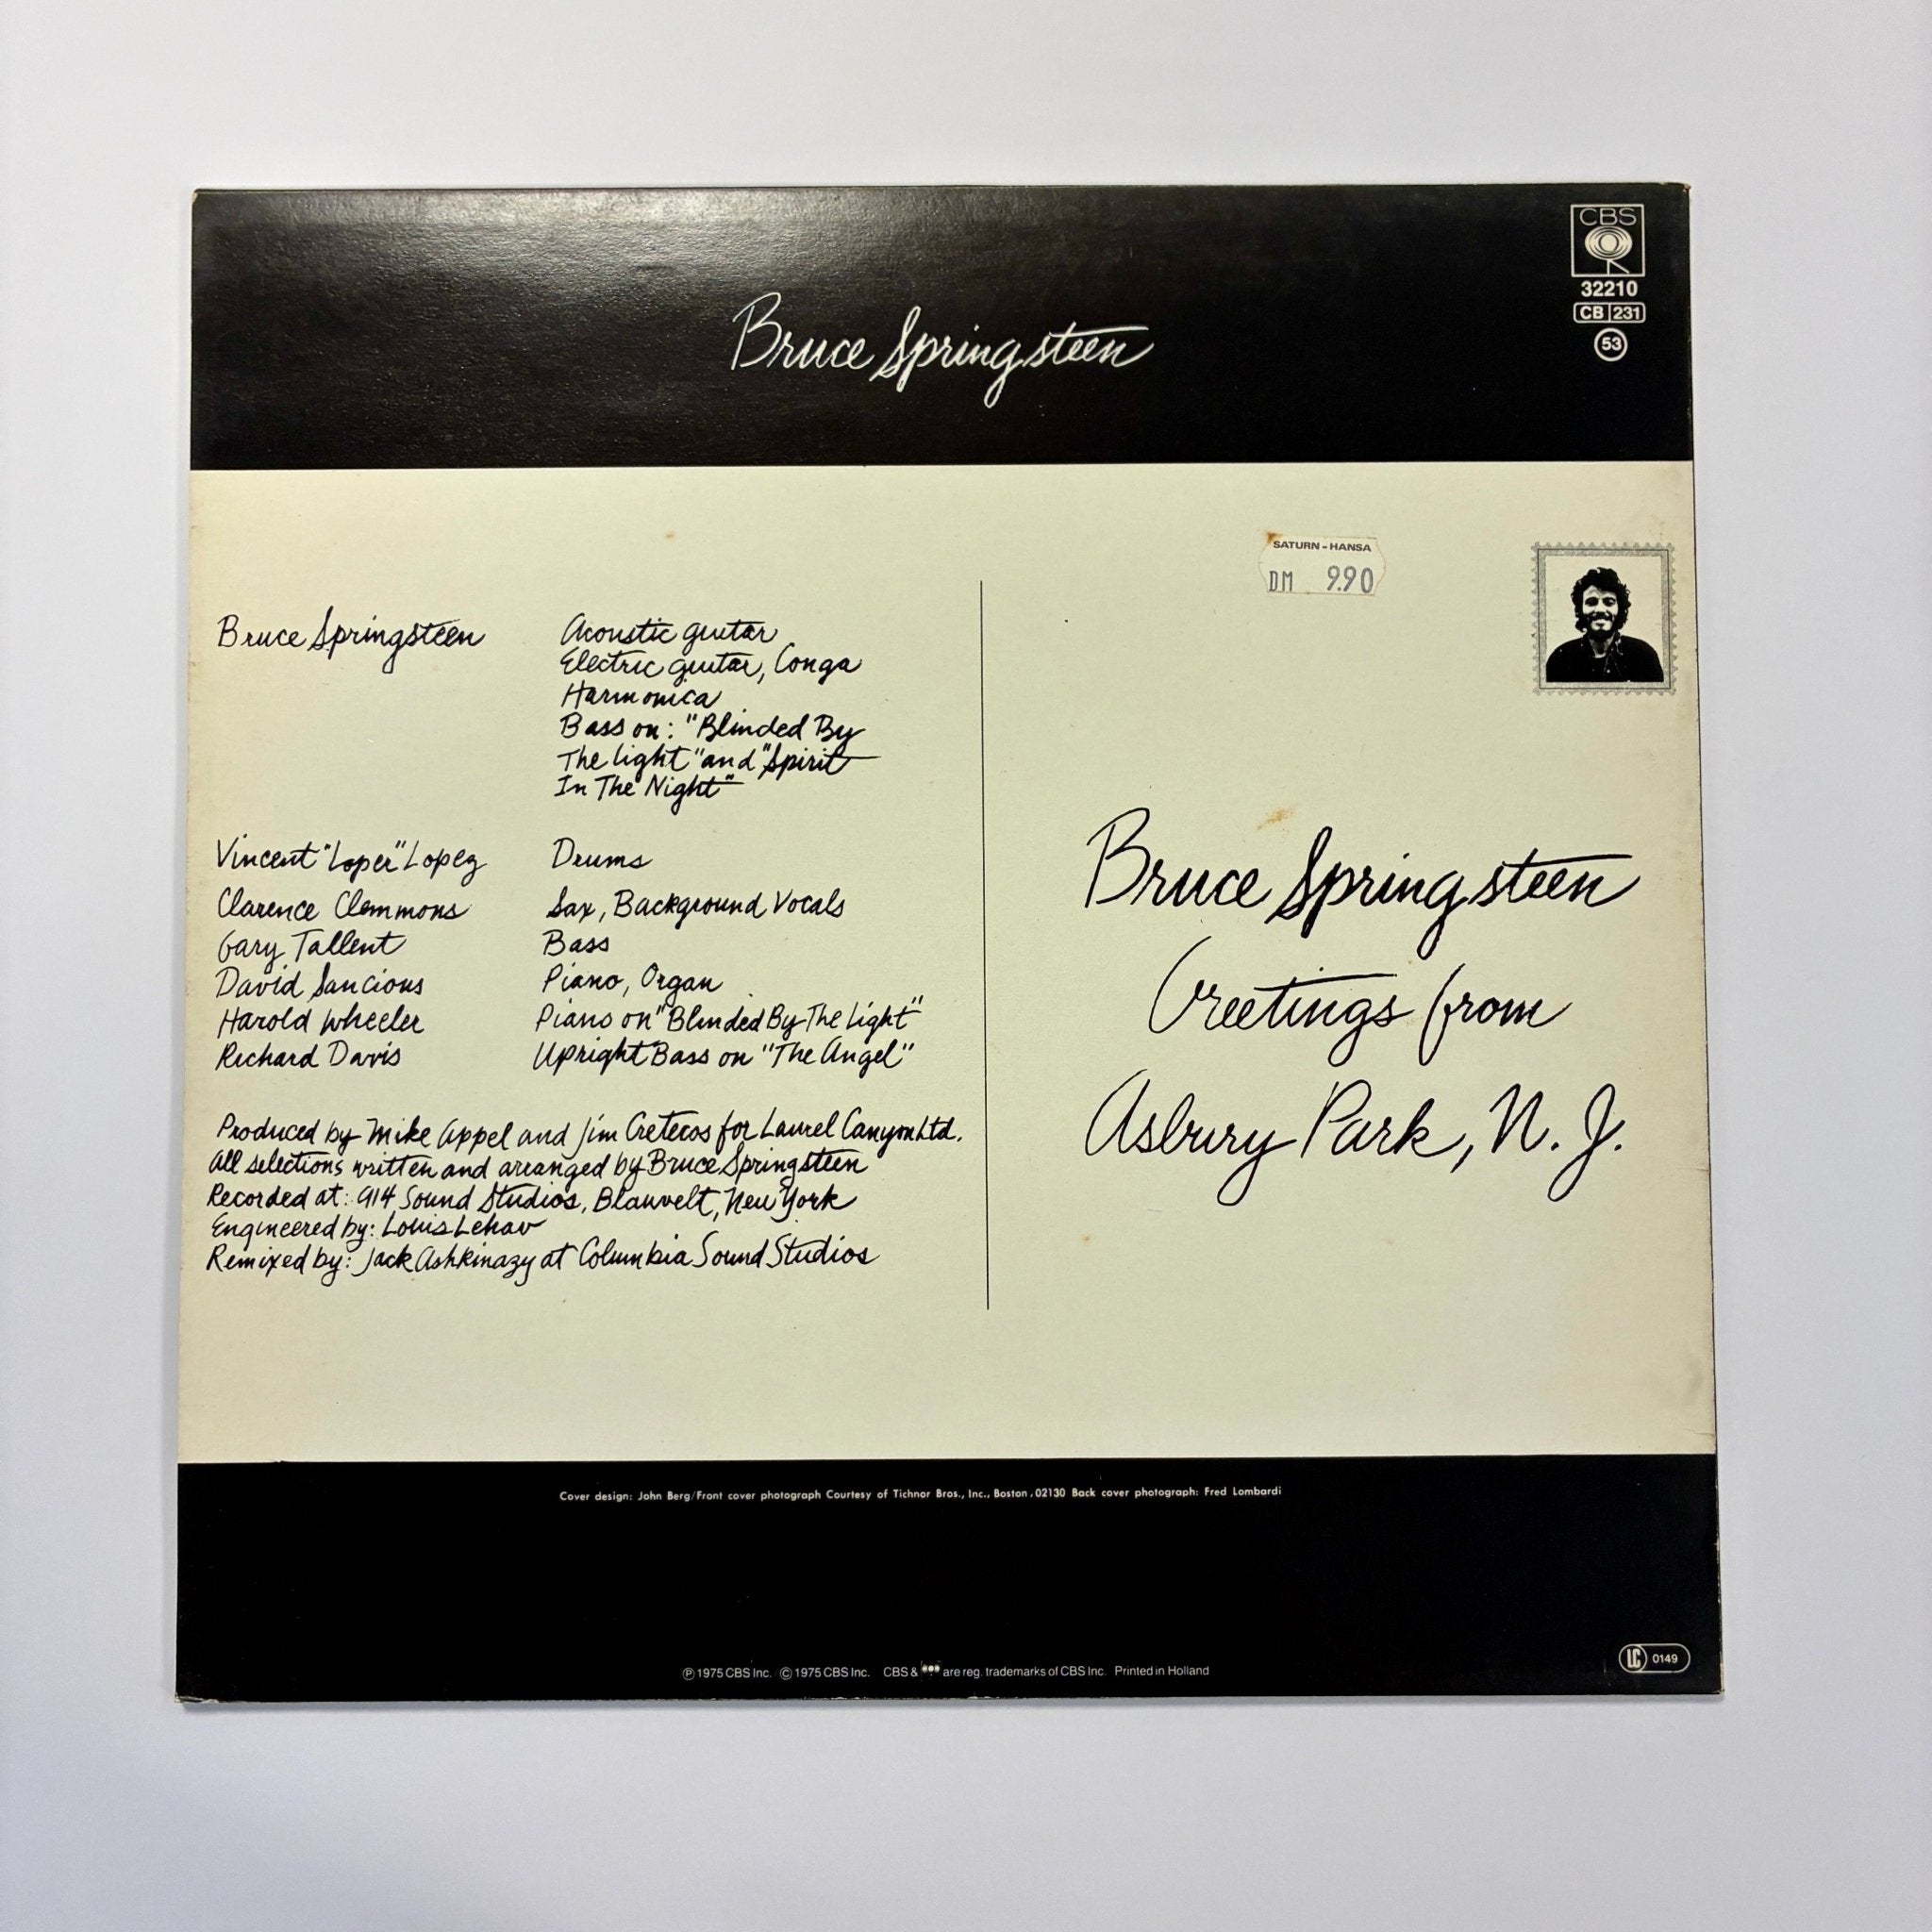 CBS
32210
CB 231
53
Bruce Springsteen
SATURN-HANSA
DM 9.90
Bruce Springsteen Acoustic guitar
Electric guitar, Conga
Harmonica
Bass on: "Blinded By
The Light" and "Spirit
In The Night"
Vincent "Loper" Lopez Drums
Clarence Clemmons Sax, Background Vocals
Gary Tallent Bass
David Sancious Piano, Organ
Harold Wheeler Piano on "Blinded By The Light"
Richard Davis Upright Bass on "The Angel"
Produced by Mike Appel and Jim Cretecos for Laurel Canyon Ltd.
All selections written and arranged by Bruce Springsteen
Recorded at: 914 Sound Studios, Blauvelt, New York
Engineered by: Louis Lehav
Remixed by: Jack Ashkinazy at Columbia Sound Studios
Bruce Springsteen
Greetings from
Asbury Park, N. J.
Cover design: John Berg/Front cover photograph Courtesy of Tichnor Bros., Inc., Boston, 02130 Back cover photograph: Fred Lombardi
℗ 1975 CBS Inc. © 1975 CBS Inc. CBS & are reg. trademarks of CBS Inc. Printed in Holland
LC 0149